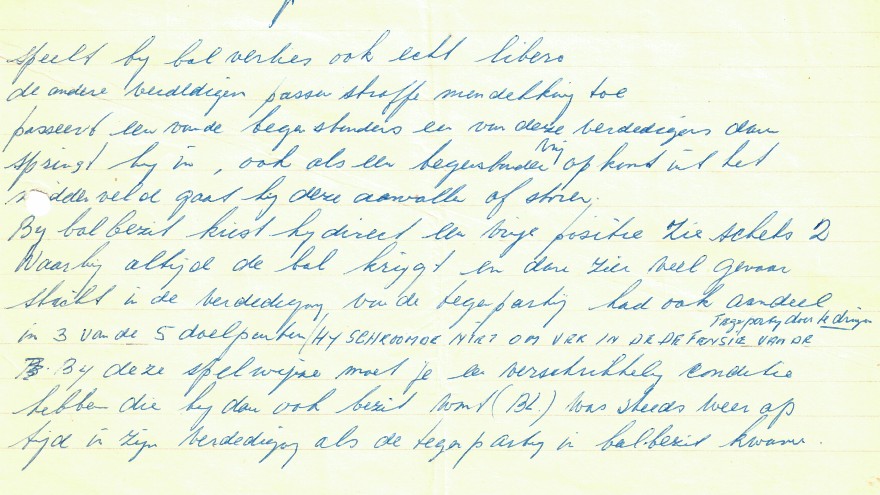 speelt by bal verlies ook echt libero
de andere verdedigen passen straffe mendekking toe
passeert een van de tegenstanders een van deze verdedigers dan
springt hy in , ook als een tegenstander vrij op komt uit het
middenveld gaat hy deze aanvallen of storen.
By balbezit kiest hy direct een vrije positie Zie schets 2
Waarby altijd de bal krijgt en dan zeer veel gevaar
sticht in de verdediging van de tegenparty had ook aandeel
in 3 van de 5 doelpunten (HY SCHROOMDE NIET OM VER IN DE DEFENSIE VAN DE Tegenparty door te dringen
By deze spelwijze moet je een verschrikkelyk conditie
hebben die hy dan ook bezit want (BL.) was steeds weer op
tijd in zijn verdediging als de tegenparty in balbezit kwam.